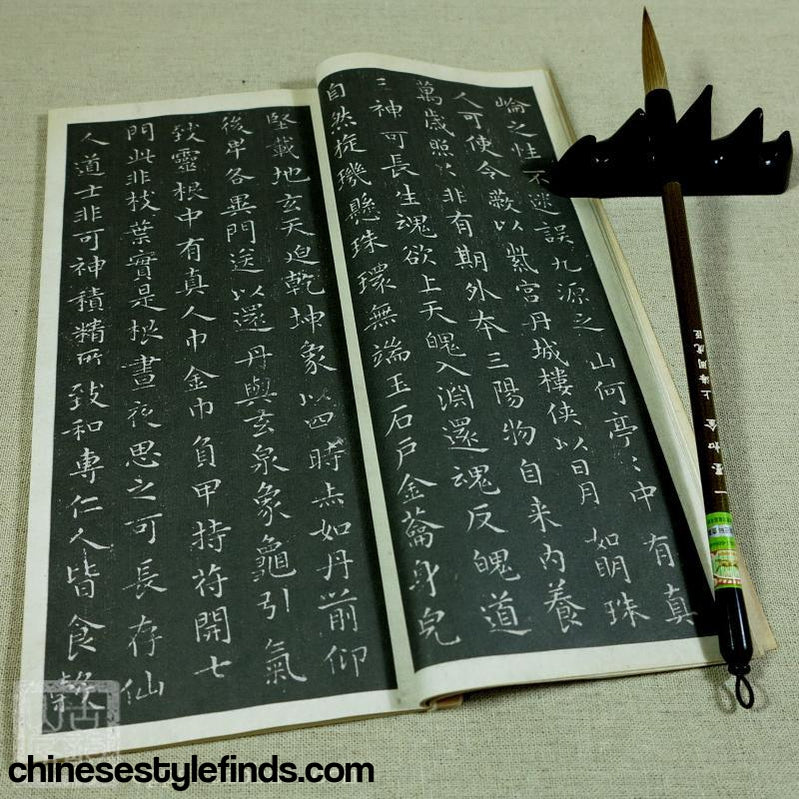 崘之性不迷誤九源之山何亭〻中有真
人可使令蔽以紫宮丹城樓侠以日月如明珠
萬歲照〻非有期外本三陽物自来内養
三神可長生魂欲上天魄入淵還魂反魄道
自然旋璣懸珠環無端玉石戶金蘥身皃
堅載地玄天迫乾坤象以四時赤如丹前仰
後卑各異門送以還丹與玄泉象龜引氣
致靈根中有真人巾金巾負甲持符開七
門此非枝葉實是根晝夜思之可長存仙
人道士非可神積精所致和專仁人皆食穀
一墨如金 上海周虎臣
chinesestylefinds.com